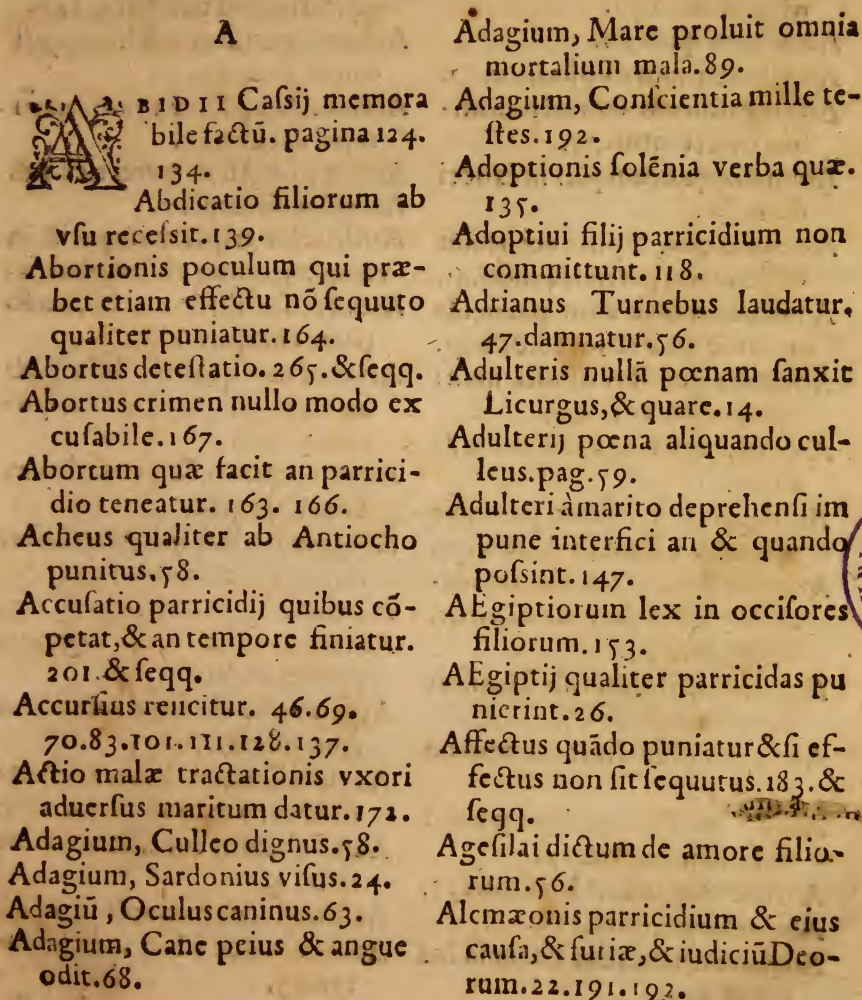 A
ABIDII Caſsij memora
bile factū. pagina 124.
134.
Abdicatio filiorum ab
vſu receſsit. 139.
Abortionis poculum qui præ-
bet etiam effectu nō ſequuto
qualiter puniatur. 164.
Abortus deteſtatio. 265. & ſeqq.
Abortus crimen nullo modo ex
cuſabile. 167.
Abortum quæ facit an parrici-
dio teneatur. 163. 166.
Acheus qualiter ab Antiocho
punitus. 58.
Accuſatio parricidij quibus cō-
petat, & an tempore finiatur.
201. & ſeqq.
Accurſius reiicitur. 46. 69.
70. 83. 101. 111. 128. 137.
Actio malæ tractationis vxori
aduerſus maritum datur. 172.
Adagium, Culleo dignus. 58.
Adagium, Sardonius viſus. 24.
Adagiū, Oculus caninus. 63.
Adagium, Cane peius & angue
odit. 68.
Adagium, Mare proluit omnia
mortalium mala. 89.
Adagium, Conſcientia mille te-
ſtes. 192.
Adoptionis ſolēnia verba quæ.
135.
Adoptiui filij parricidium non
committunt. 118.
Adrianus Turnebus laudatur.
47. damnatur. 56.
Adulteris nullā pœnam ſanxit
Licurgus, & quare. 14.
Adulterij pœna aliquando cul-
leus. pag. 59.
Adulteri à marito deprehenſi im
pune interfici an & quando
poſsint. 147.
AEgiptiorum lex in occiſores
filiorum. 153.
AEgiptij qualiter parricidas pu
nierint. 26.
Affectus quādo puniatur & ſi ef-
fectus non ſit ſequutus. 183. &
ſeqq.
Ageſilai dictum de amore filio-
rum. 56.
Alcmæonis parricidium & eius
cauſa, & furiæ, & iudiciū Deo-
rum. 22. 191. 192.